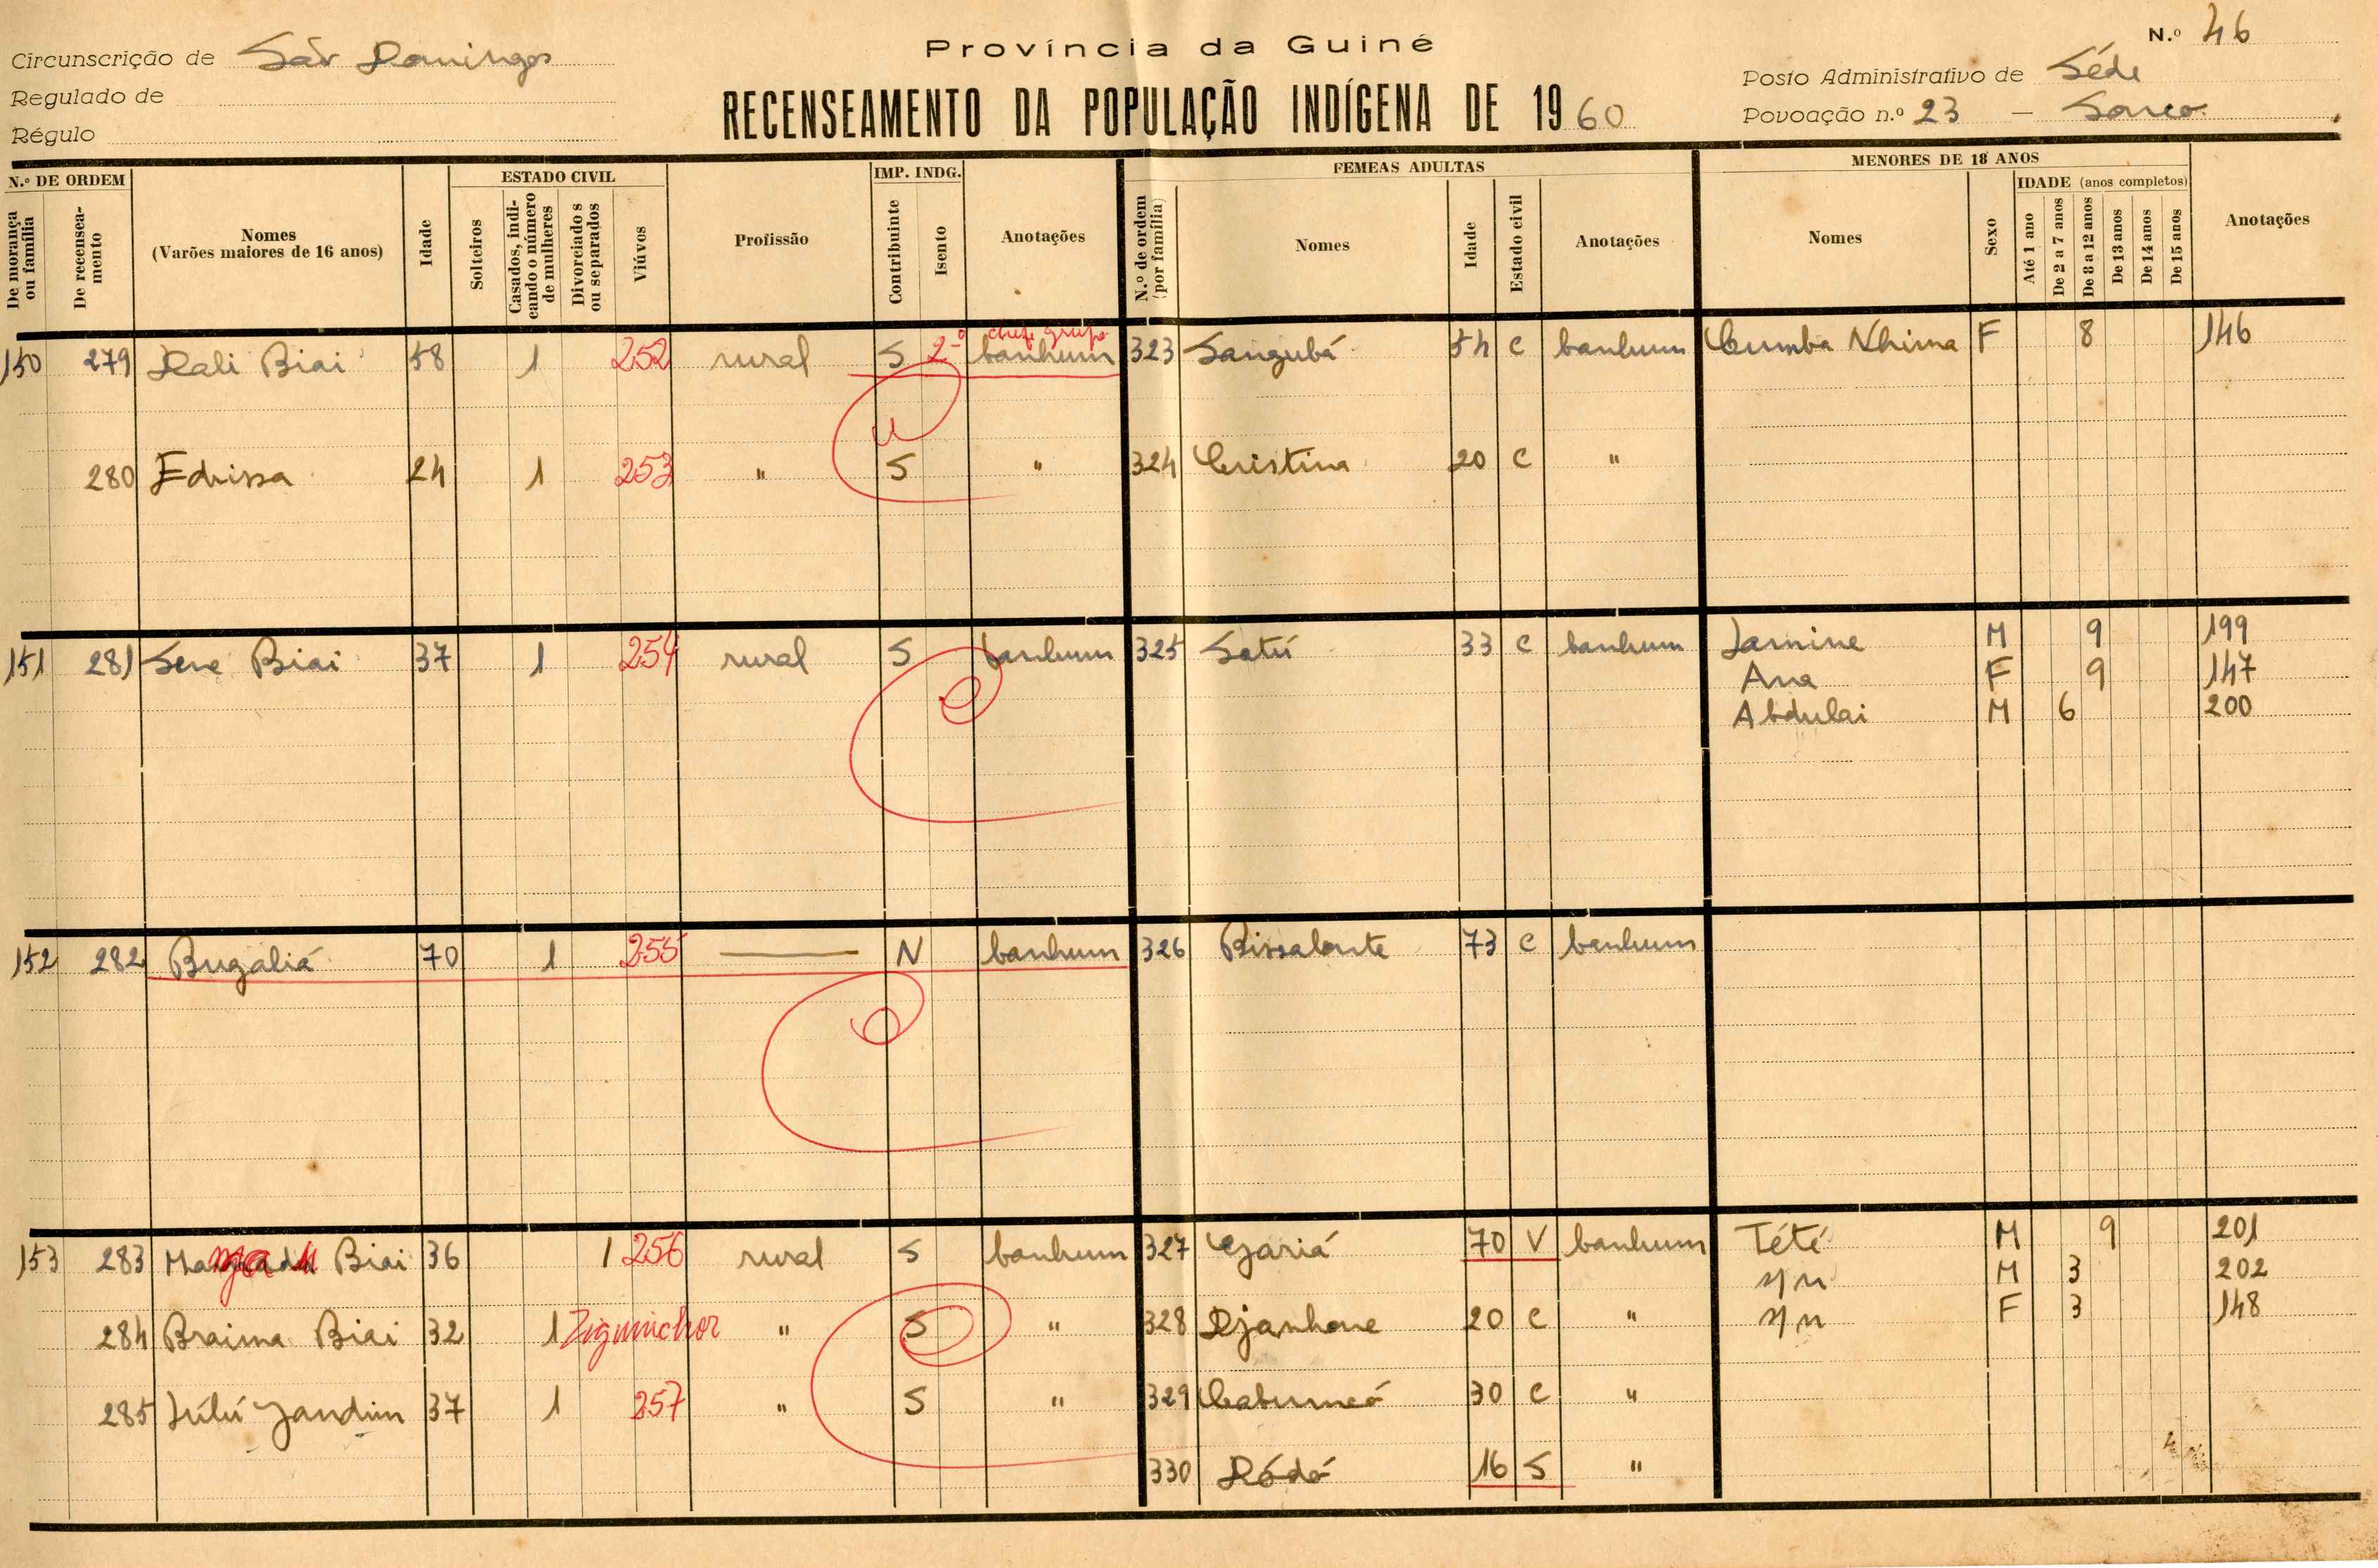 Província da Guiné
N.º 46
Circunscrição de São Domingos
Posto Administrativo de Séde
Regulado de
RECENSEAMENTO DA POPULAÇÃO INDÍGENA DE 1960
Povoação n.º 23 –
Régulo
N.º DE ORDEM
De morança ou família
De recenseamento
Nomes
(Varões maiores de 16 anos)
Idade
ESTADO CIVIL
Solteiros
Casados, indicando o número de mulheres
Divorciados ou separados
Viúvos
Profissão
IMP. INDG.
Contribuinte
Isento
Anotações
FEMEAS ADULTAS
N.º de ordem (por família)
Nomes
Idade
Estado civil
Anotações
MENORES DE 18 ANOS
Nomes
Sexo
IDADE (anos completos)
Até 1 ano
De 2 a 7 anos
De 8 a 12 anos
De 13 anos
De 14 anos
De 15 anos
Anotações
chefe grupo
150 279 Dali Biai 58 1 252 rural S 2º banhum 323 Sangubá 54 C banhum Cumba Nhima F 8 146
280 Edrissa 24 1 253 " S " 324 Cristina 20 C "
151 281 Sene Biai 37 1 254 rural S banhum 325 Satú 33 C banhum Lamine M 9 199
Ana F 9 147
Abdulai M 6 200
152 282 Bugaliá 70 1 255 — N banhum 326 73 C banhum
153 283 Biai 36 1 256 rural S banhum 327 70 V banhum Tété M 9 201
n/n M 3 202
284 Braima Biai 32 1 Ziguinchor " S " 328 Djanhone 20 C " n/n F 3 148
285 Lúlú Jandim 37 1 257 " S " 329 30 C "
330 Dódó 16 S "